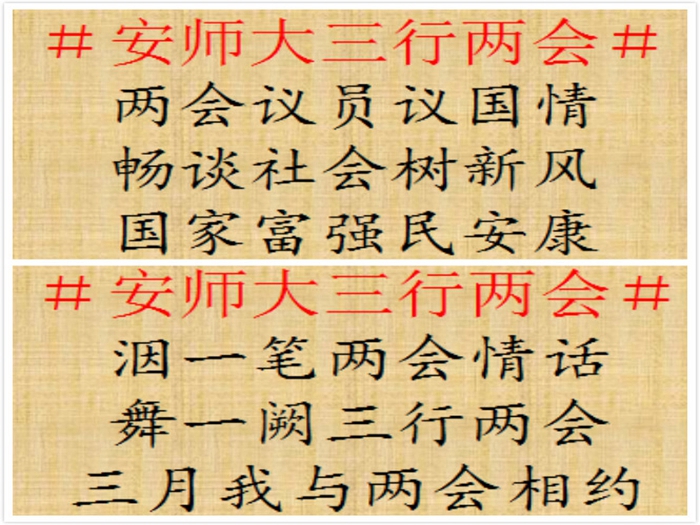 #安师大三行两会#
两会议员议国情
畅谈社会树新风
国家富强民安康
#安师大三行两会#
洇一笔两会情话
舞一阙三行两会
三月我与两会相约